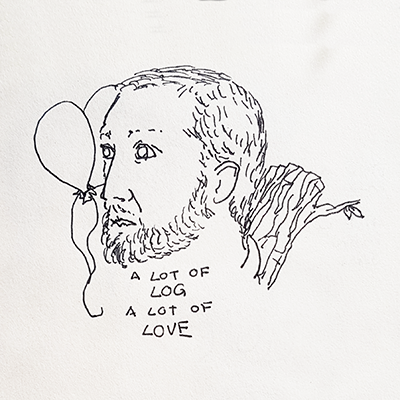 A LOT OF
LOG
A LOT OF
LOVE